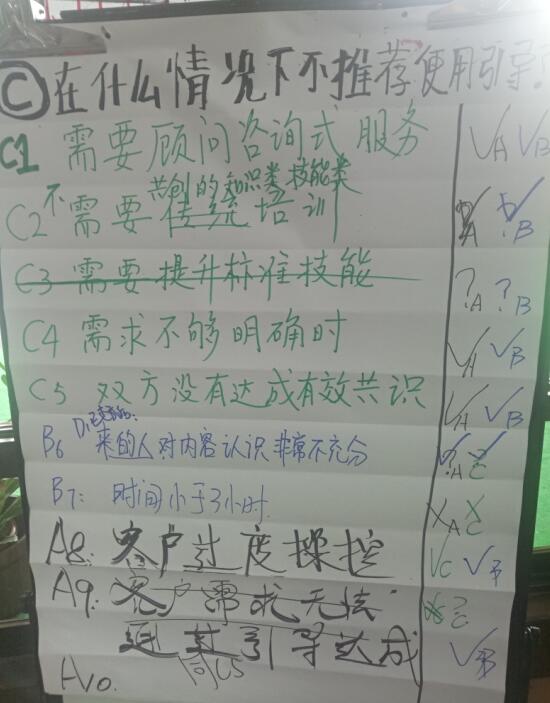 C 在什么情况下不推荐使用引导
C1 需要顾问咨询式服务 √A √B
共创的知识类、技能类
C2 不需要传统培训 A ?B
C3 需要提升标准技能 ?A ?B
C4 需求不够明确时 √A √B
C5 双方没有达成有效共识 √A √B
B6 来的人对内容认识非常不充分 ?A √C
B7: 时间小于3小时 XA XC
A8: 客户过度操控 √C √B
A9: 客户需求无法 ?C
通过引导达成 √B
同C5
A10.